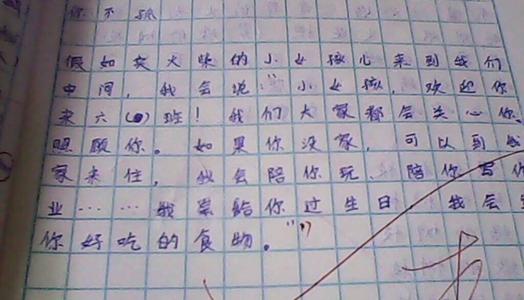 你不孤
假如卖火柴的小女孩儿来到我们
中间，我会说：“小女孩，欢迎你
来六（）班！我们大家都会关心你、
照顾你。如果你没家，可以到我
家来住，我会陪你玩、陪你写作
业……我会给你过生日，我会
你好吃的食物。”